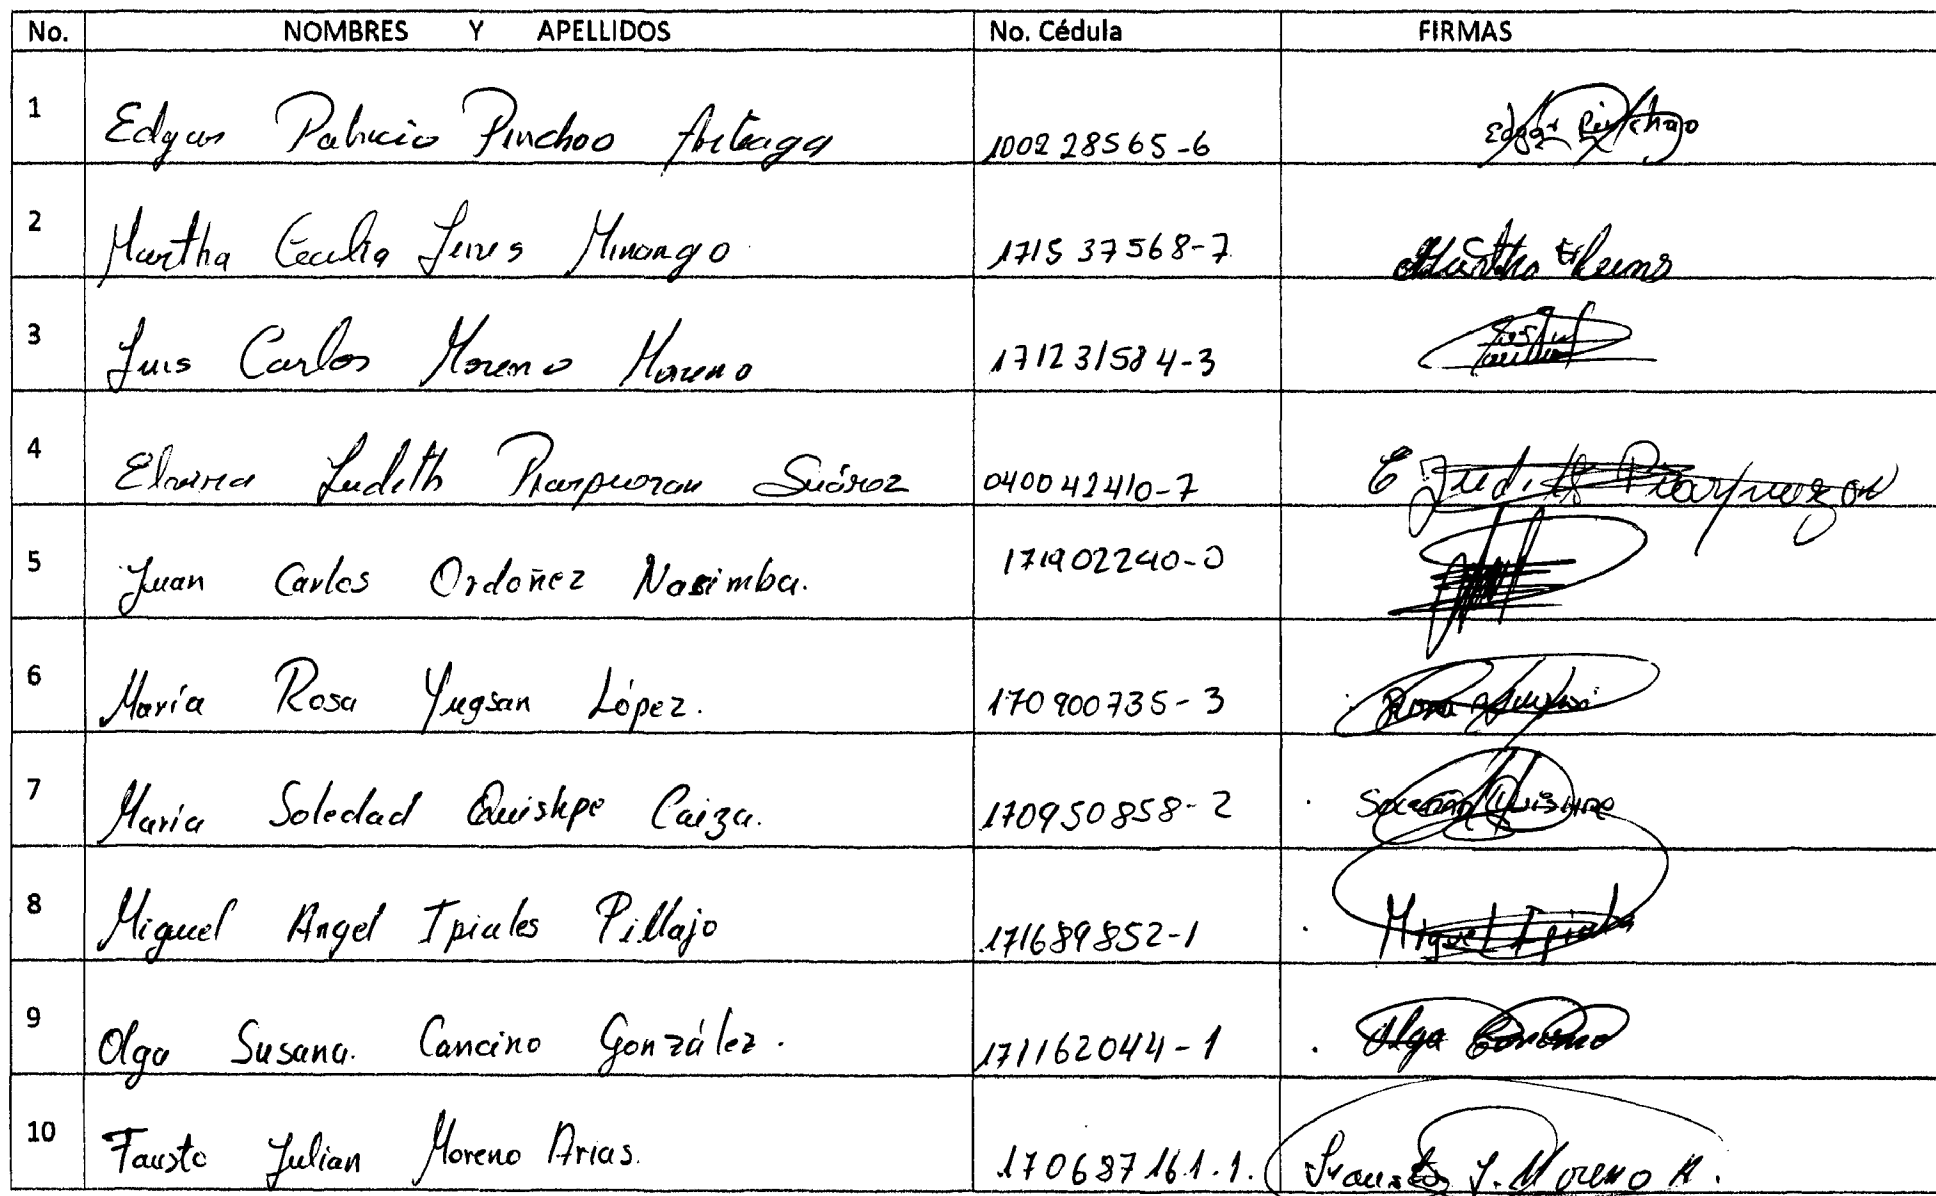 No. NOMBRES Y APELLIDOS No. Cédula FIRMAS
1 Edgar Patricio Pinchao Arteaga 100228565-6 Edgar Pinchao
2 Martha Cecilia Minango 171537568-7 Martha
3 Luis Carlos Moreno Moreno 171231584-3
4 Judith Piarpuezan Suárez 040042410-7 E Judith Piarpuezan
5 Juan Carlos Ordoñez Nasimba. 171902240-0
6 María Rosa Yugsan López. 170900735-3 Rosa
7 María Soledad Quishpe Caiza. 170950858-2 Soledad Quishpe
8 Miguel Angel Ipiales Pillajo 171689852-1 Miguel Ipiales
9 Olga Susana. Cancino González. 171162044-1 Olga Cancino
10 Fausto Julian Moreno Arias. 170687161-1. Fausto J. Moreno A.